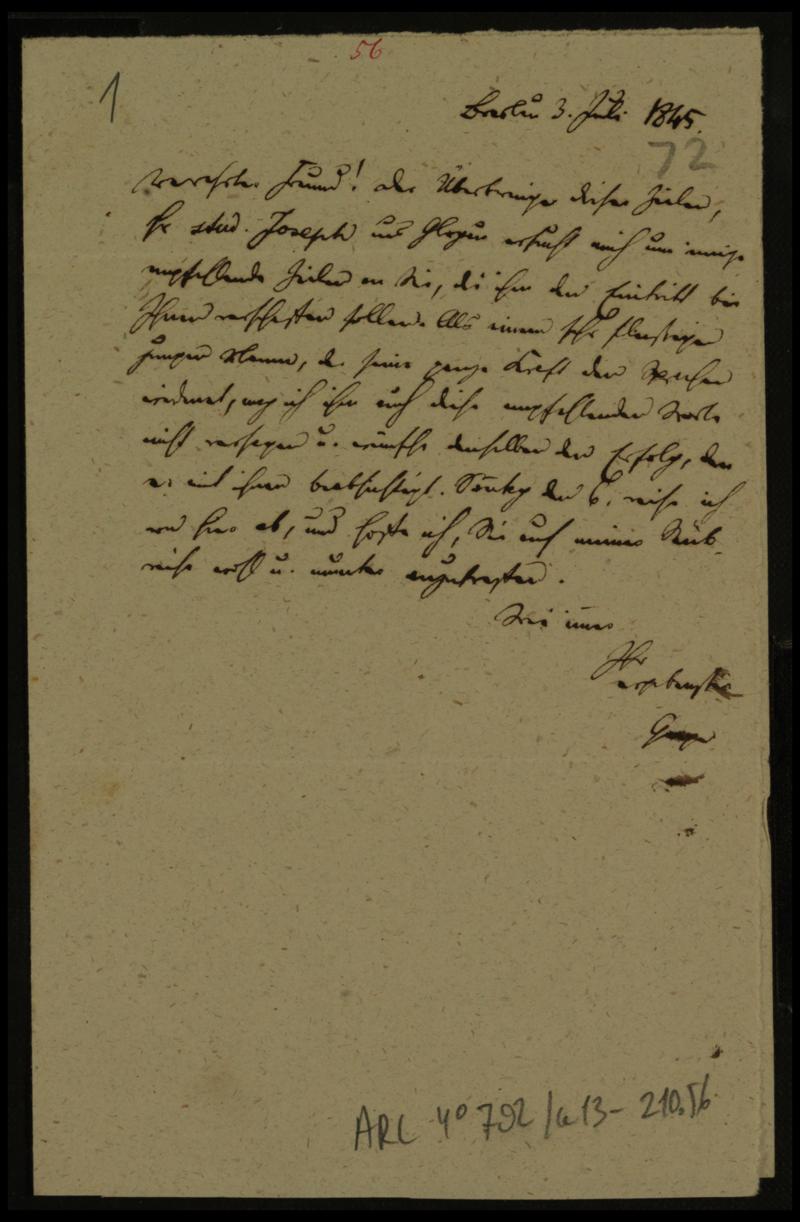 56
1
Breslau 3. Juli 1845.
72
Verehrter Freund! Der Überbringer dieser Zeilen,
Hr stud. Joseph aus Glogau ersucht mich um einige
empfehlende Zeilen an Sie, die ihm den Eintritt bei
Ihnen verschaffen sollen. Als einem sehr fleissigen
jungen Manne, der seine ganze Kraft den Sprachen
widmet, mag ich ihm auch diese empfehlenden Worte
nicht versagen u. wünsche denselben den Erfolg, den
er mit ihnen beabsichtigt. Sonntag den 6. reise ich
von hier ab, und hoffe ich, Sie auf meiner Rück-
reise wohl u. munter anzutreffen.
Wie immer
Ihr
ergebenster
Geiger
ARC 4° 792/G13-210.56